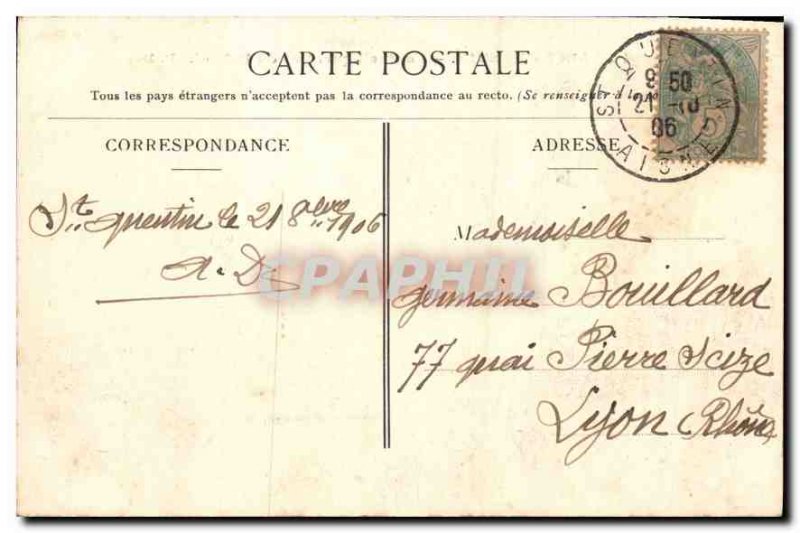 CARTE POSTALE
Tous les pays étrangers n'acceptent pas la correspondance au recto. (Se renseigner à la
CORRESPONDANCE
ADRESSE
ST QUENTIN
8 50
21 -10
06
AISNE
St Quentin le 21 8bre 1906
A. D.
CPARAMA
Mademoiselle
Germaine Bouillard
77 quai Pierre Scize
Lyon (Rhône)